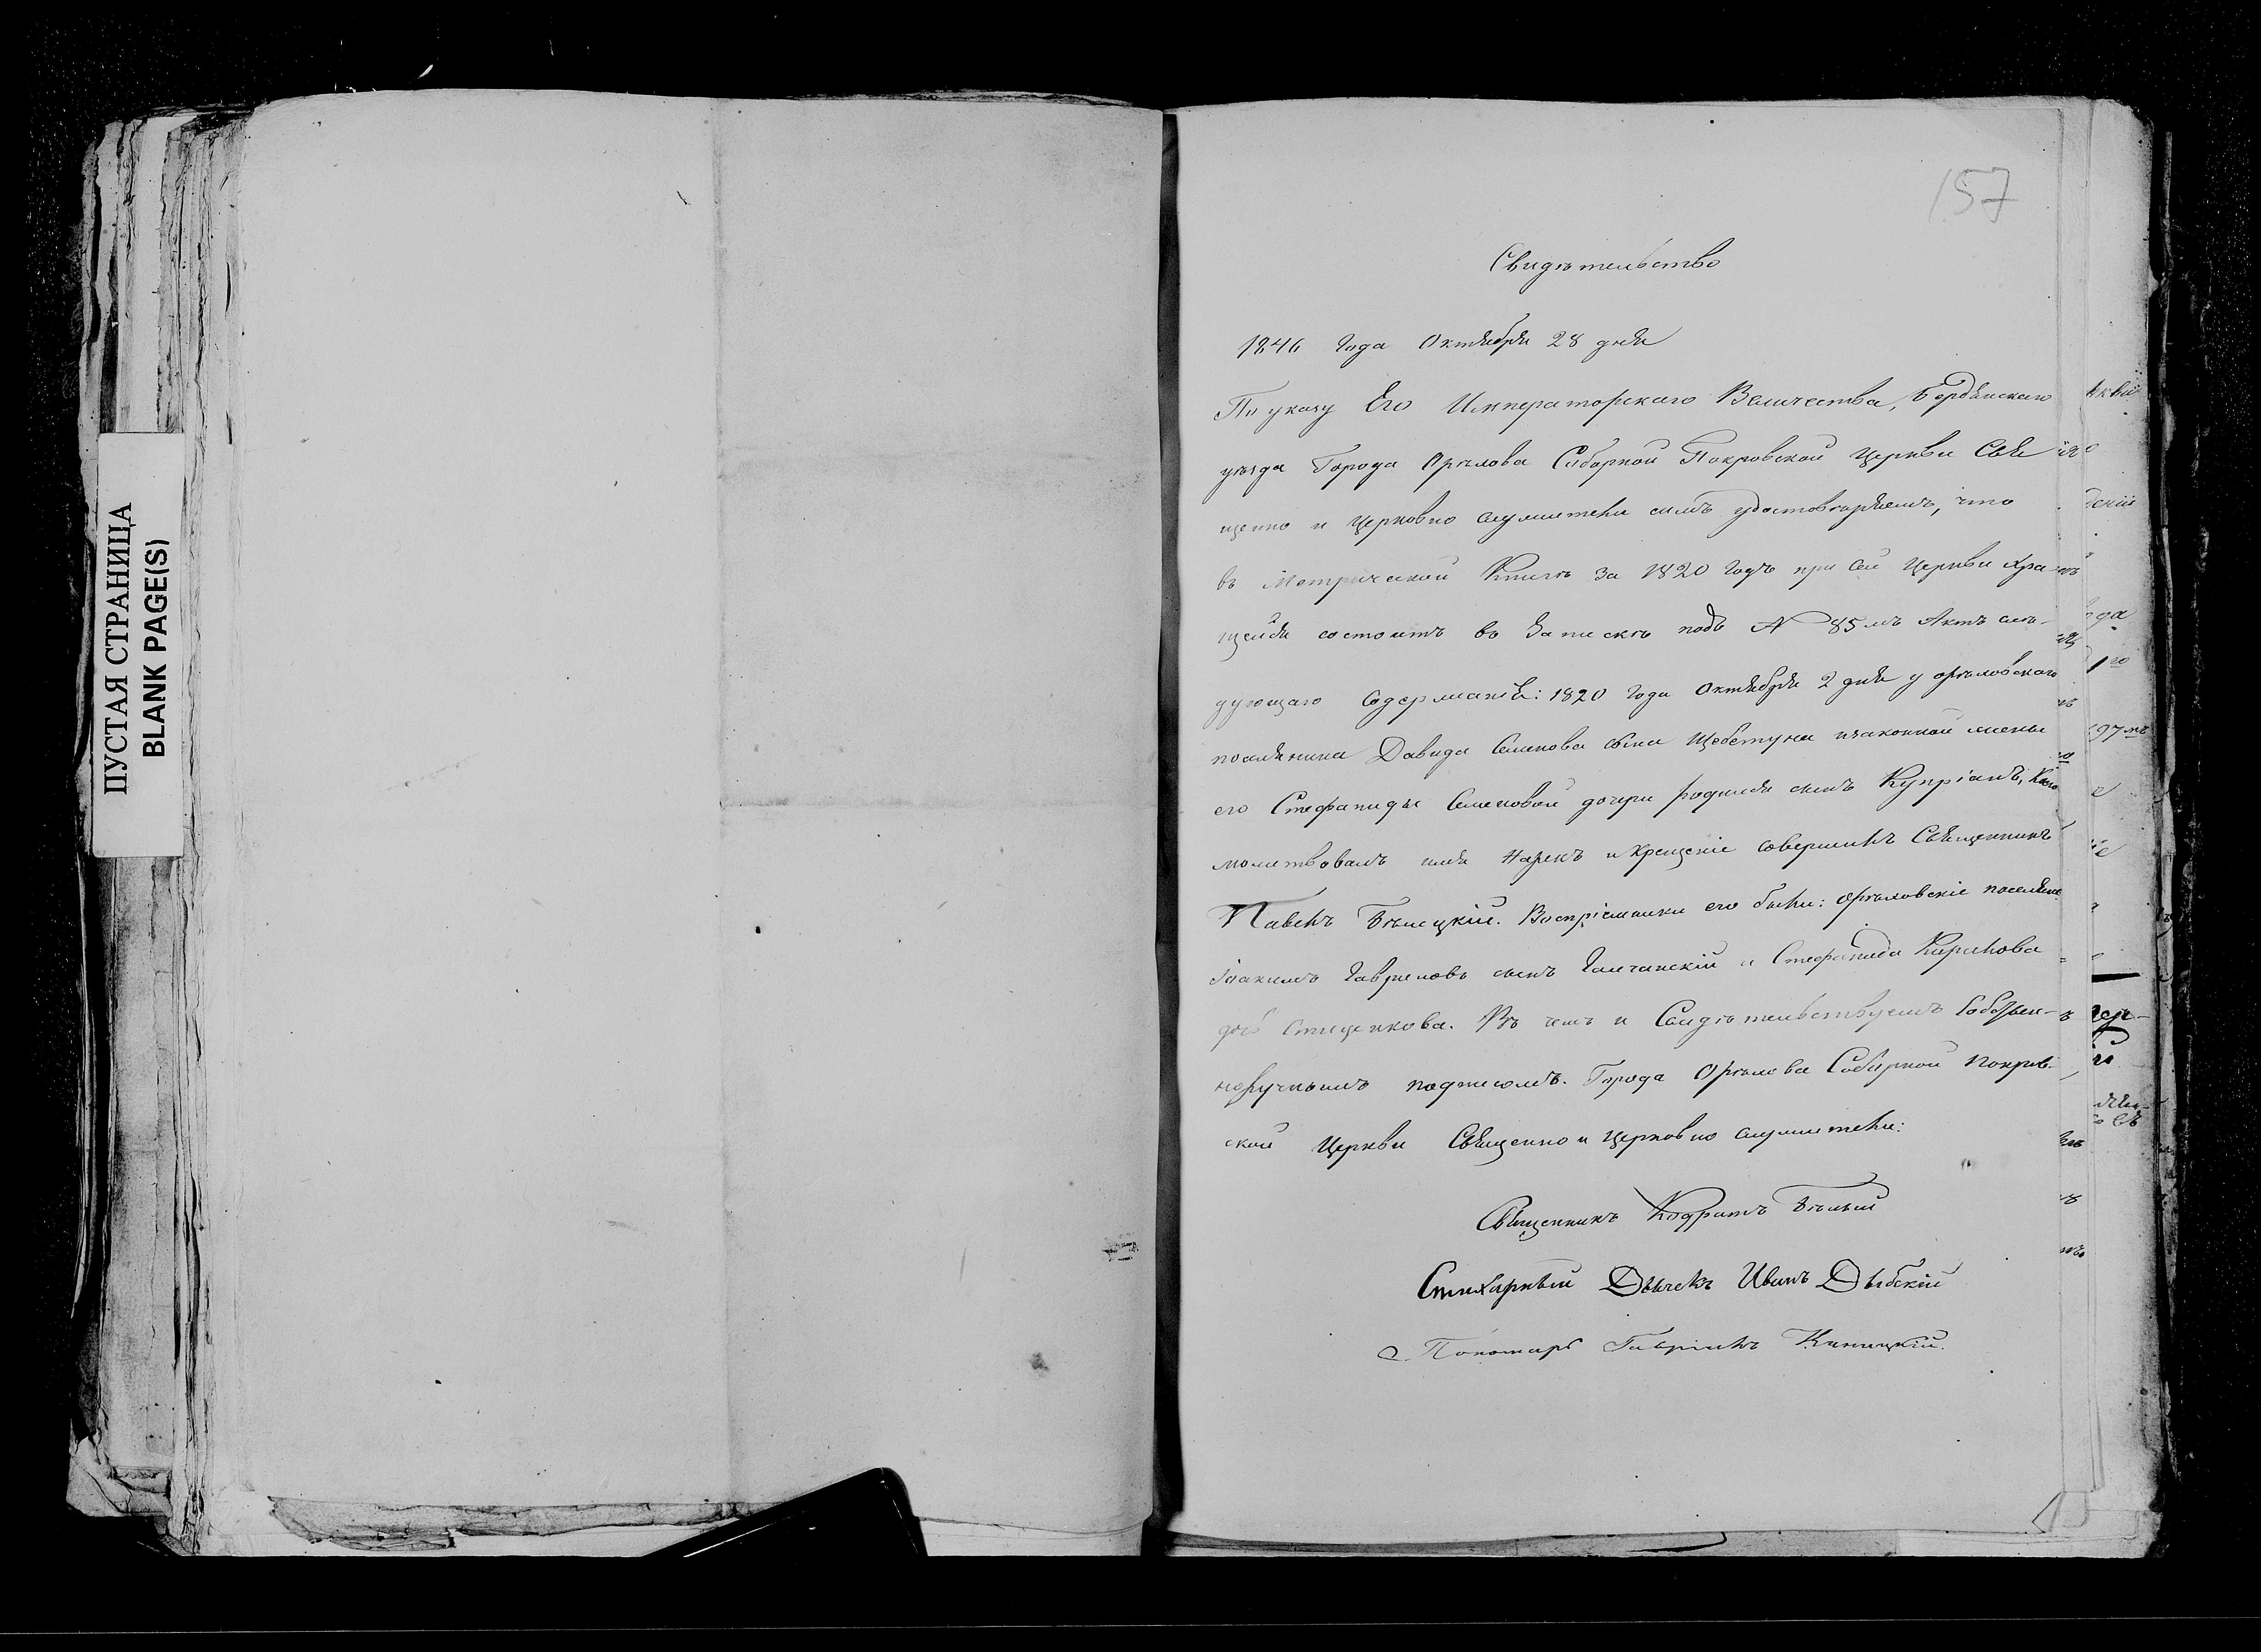 ПУСТАЯ СТРАНИЦА
BLANK PAGE(S)
157
Свидѣтельство
1846 года Октября 28 дня
По указу Его Императорскаго Величества, Бердянскаго
уѣзда Города Орѣхова Соборной Покровской Церкви Свя
щенно и Церковно служители симъ удостовѣряемъ, что
въ Метрической Книгѣ за 1820 годъ при сей Церкви хра
щейся состоитъ въ Запискѣ подъ N 85мъ Актъ слѣ-
дующаго Содержанія: 1820 года Октября 2 дня у орѣховскаго
поселянина Давида Семенова сына Щебетуна и законной жены
его Стефаниды Семеновой дочери родился сынъ Купріанъ, Коего
молитвовалъ имя Нарекъ и Крещеніе совершилъ Священникъ
Павелъ Бѣлецкій. Воспріемники его были: орѣховскіе поселяне
Іоакимъ Гавриловъ сынъ Галчанскій и Стефанида Кирилова
дочь Стиценкова. Въ чемъ и Свидѣтельствуемъ Собствен-
норучнымъ подписомъ. Города Орѣхова Соборной Покров-
ской Церкви Священно и Церковно служители:
Священникъ Кодратъ Бѣлый
Стихарный Дьячекъ Иванъ Дыбскій
Пономарь Гавріилъ Киницкій.